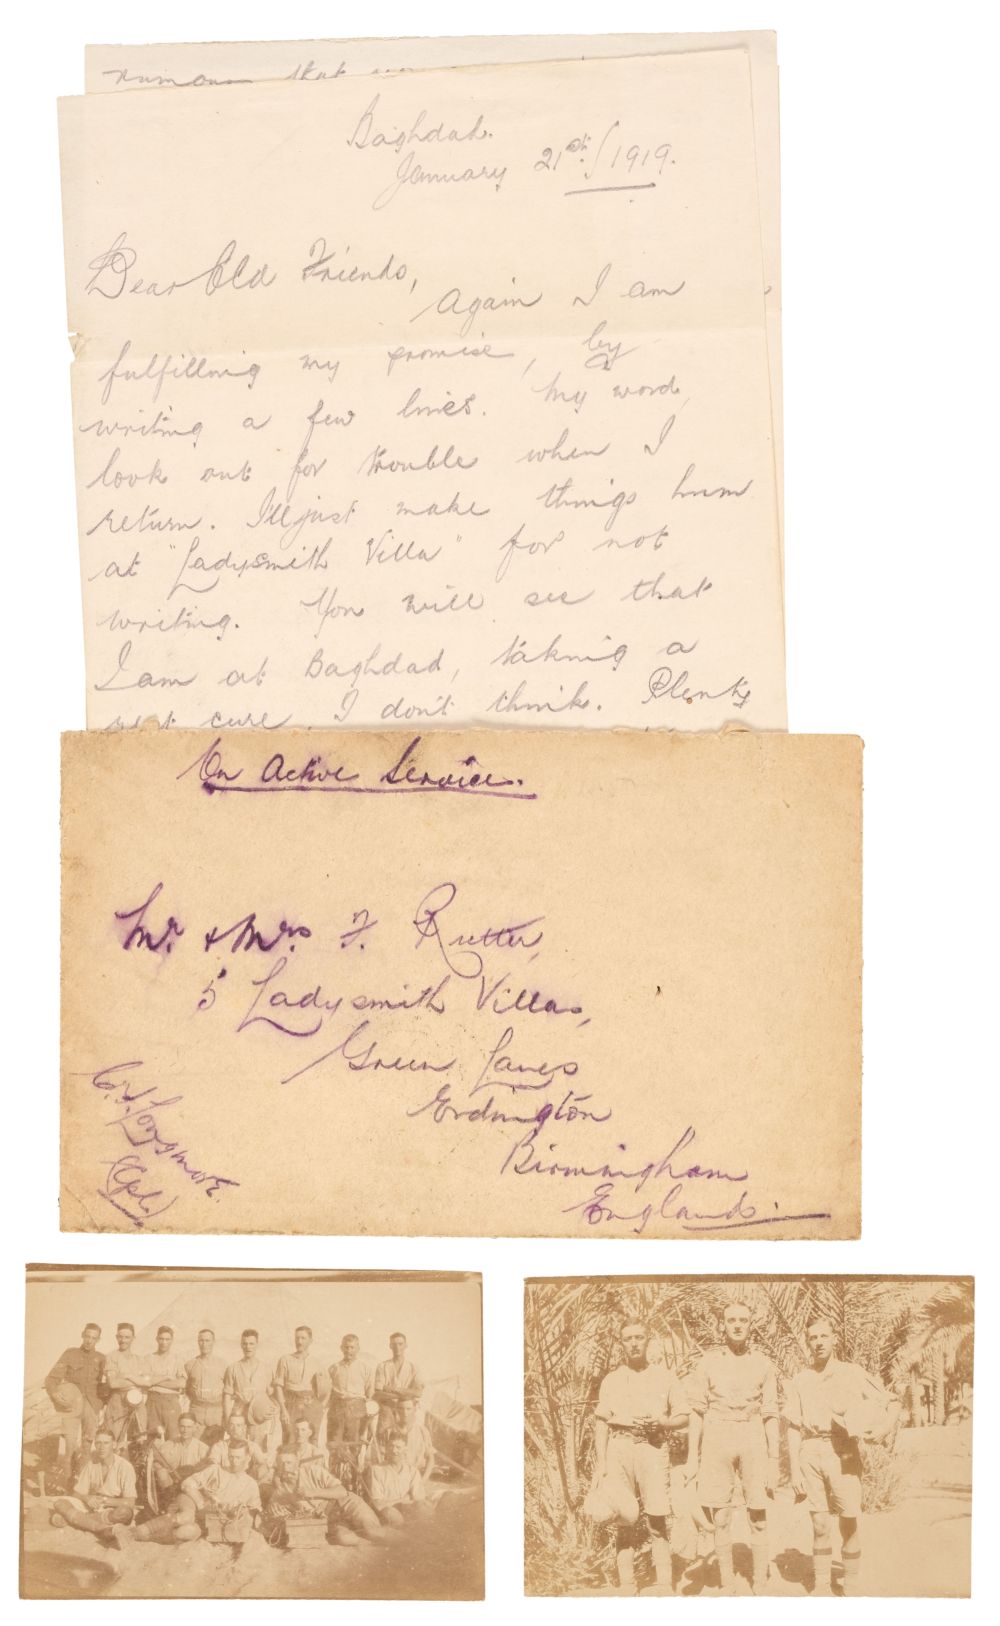 rumours that
Baghdad.
January 21st/1919.
Dear Old Friends,
Again I am
fulfilling my promise, by
writing a few lines. My word,
look out for trouble when I
return. I'll just make things hum
at "Ladysmith Villa" for not
writing. You will see that
I am at Baghdad, taking a
rest cure, I don't think. Plenty
On Active Service.
Mr. & Mrs F. Rutter,
5 Ladysmith Villas,
Green Lanes
Erdington
Birmingham
England.
Longmore.
(Cpl.)